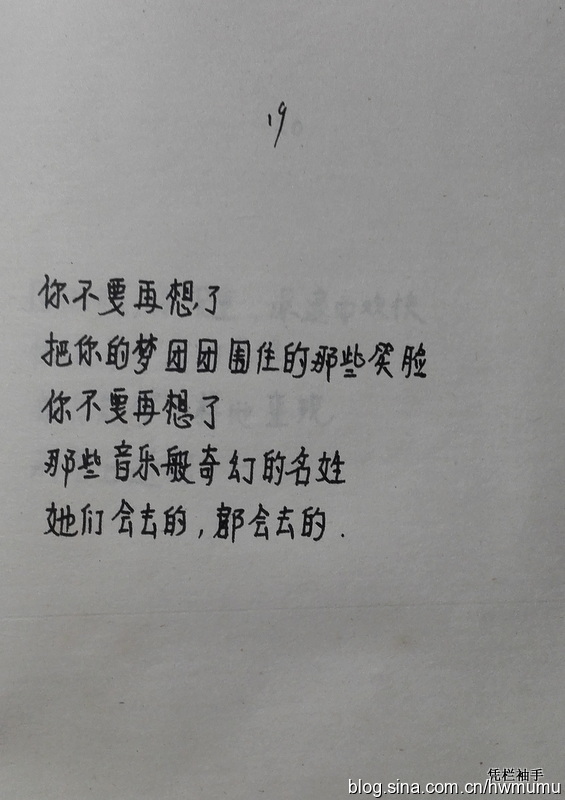 19
你不要再想了
把你的梦团团围住的那些笑脸
你不要再想了
那些音乐般奇幻的名姓
她们会去的,都会去的.
凭栏袖手
blog.sina.com.cn/hwmumu